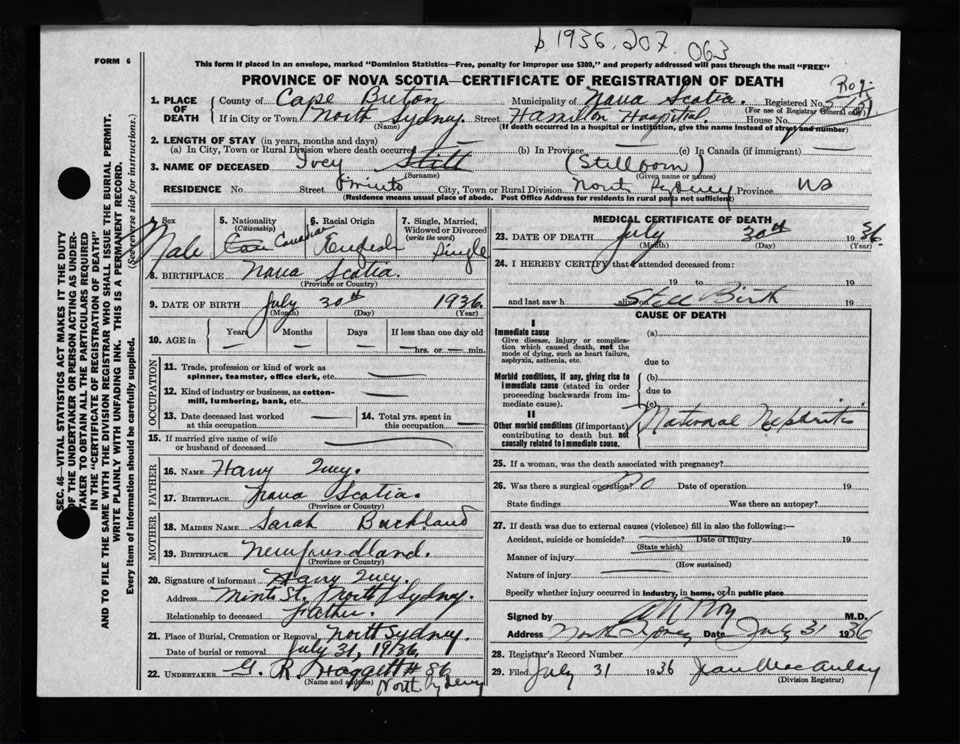 p. 1936. 207. 063
FORM 6
This form if placed in an envelope, marked "Dominion Statistics—Free, penalty for improper use $300," and properly addressed will pass through the mail "FREE"
PROVINCE OF NOVA SCOTIA—CERTIFICATE OF REGISTRATION OF DEATH
1. PLACE OF DEATH County of Cape Breton Municipality of Nova Scotia. Registered No.
(For use of Registrar General only)
If in City or Town North Sydney. Street Hamilton Hospital. House No.
(Name) (If death occurred in a hospital or institution, give the name instead of street and number)
2. LENGTH OF STAY (in years, months and days)
(a) In City, Town or Rural Division where death occurred (b) In Province — (c) In Canada (if immigrant) —
3. NAME OF DECEASED Ivey Still (Stillborn)
(Surname) (Given name or names)
RESIDENCE No Street City, Town or Rural Division North Sydney Province NS
(Residence means usual place of abode. Post Office Address for residents in rural parts not sufficient)
4. Sex Male
5. Nationality (Citizenship) Can Canadian
6. Racial Origin English
7. Single, Married, Widowed or Divorced (write the word) Single
8. BIRTHPLACE Nova Scotia.
(Province or Country)
9. DATE OF BIRTH July 30th 1936.
(Month) (Day) (Year)
10. AGE in Years — Months — Days — If less than one day — hrs. or — min.
OCCUPATION
11. Trade, profession or kind of work as spinner, teamster, office clerk, etc. —
12. Kind of industry or business, as cotton-mill, lumbering, bank, etc. —
13. Date deceased last worked at this occupation. —
14. Total yrs. spent in this occupation —
15. If married give name of wife or husband of deceased —
FATHER
16. NAME Harry Ivey.
17. BIRTHPLACE Nova Scotia.
(Province or Country)
MOTHER
18. MAIDEN NAME Sarah Buckland
19. BIRTHPLACE Newfoundland.
(Province or Country)
20. Signature of informant Harry Ivey.
Address Minto St. North Sydney.
Relationship to deceased Father.
21. Place of Burial, Cremation or Removal North Sydney.
Date of burial or removal July 31, 1936.
22. UNDERTAKER G. R. Haggett # 86
(Name and address) North Sydney
MEDICAL CERTIFICATE OF DEATH
23. DATE OF DEATH July 30th 1936.
(Month) (Day) (Year)
24. I HEREBY CERTIFY that I attended deceased from:
19 to 19
and last saw h alive on Still Birth 19
CAUSE OF DEATH
I
Immediate cause
Give disease, injury or complication which caused death, not the mode of dying, such as heart failure, asphyxia, asthenia, etc.
(a)
due to
Morbid conditions, if any, giving rise to immediate cause (stated in order proceeding backwards from immediate cause).
(b)
due to
(c)
II
Other morbid conditions (if important) contributing to death but not causally related to immediate cause.
Maternal Nephritis
25. If a woman, was the death associated with pregnancy?
26. Was there a surgical operation? No Date of operation 19
State findings Was there an autopsy?
27. If death was due to external causes (violence) fill in also the following:—
Accident, suicide or homicide? — Date of injury 19
(State which)
Manner of injury —
(How sustained)
Nature of injury —
Specify whether injury occurred in industry, in home, or in public place
Signed by M.D.
Address North Sydney Date July 31 1936
28. Registrar's Record Number
29. Filed July 31 1936 Jean MacAulay
(Division Registrar)
SEC. 46—VITAL STATISTICS ACT MAKES IT THE DUTY
OF THE UNDERTAKER OR PERSON ACTING AS UNDER-
TAKER TO OBTAIN ALL THE PARTICULARS REQUIRED
IN THE "CERTIFICATE OF REGISTRATION OF DEATH"
AND TO FILE THE SAME WITH THE DIVISION REGISTRAR WHO SHALL ISSUE THE BURIAL PERMIT.
WRITE PLAINLY WITH UNFADING INK. THIS IS A PERMANENT RECORD.
Every item of information should be carefully supplied. (See reverse side for instructions.)